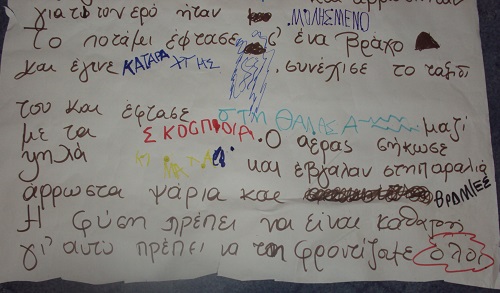 γιατί το νερό ήταν ΜΠΛΗΣΜΕΝΟ
Το ποτάμι έφτασε σ' ένα βράχο
και έγινε ΚΑΤΑΡΑ ΧΤΗΣ . συνέχισε το ταξίδι
του και έφτασε ΣΤΗ ΘΑΛΑΣΑ μαζί
με τα ΣΚΟΣΠΙΔΙΑ. Ο αέρας σήκωσε
ψηλά ΚΙ ΜΑΤΑ και έβγαλαν στηπαραλία
άρρωστα ψάρια και ΒΡΟΜΙΕΣ
Η φύση πρέπει να είναι καθαρή
γι' αυτό πρέπει να τη φροντίζομε όλοι